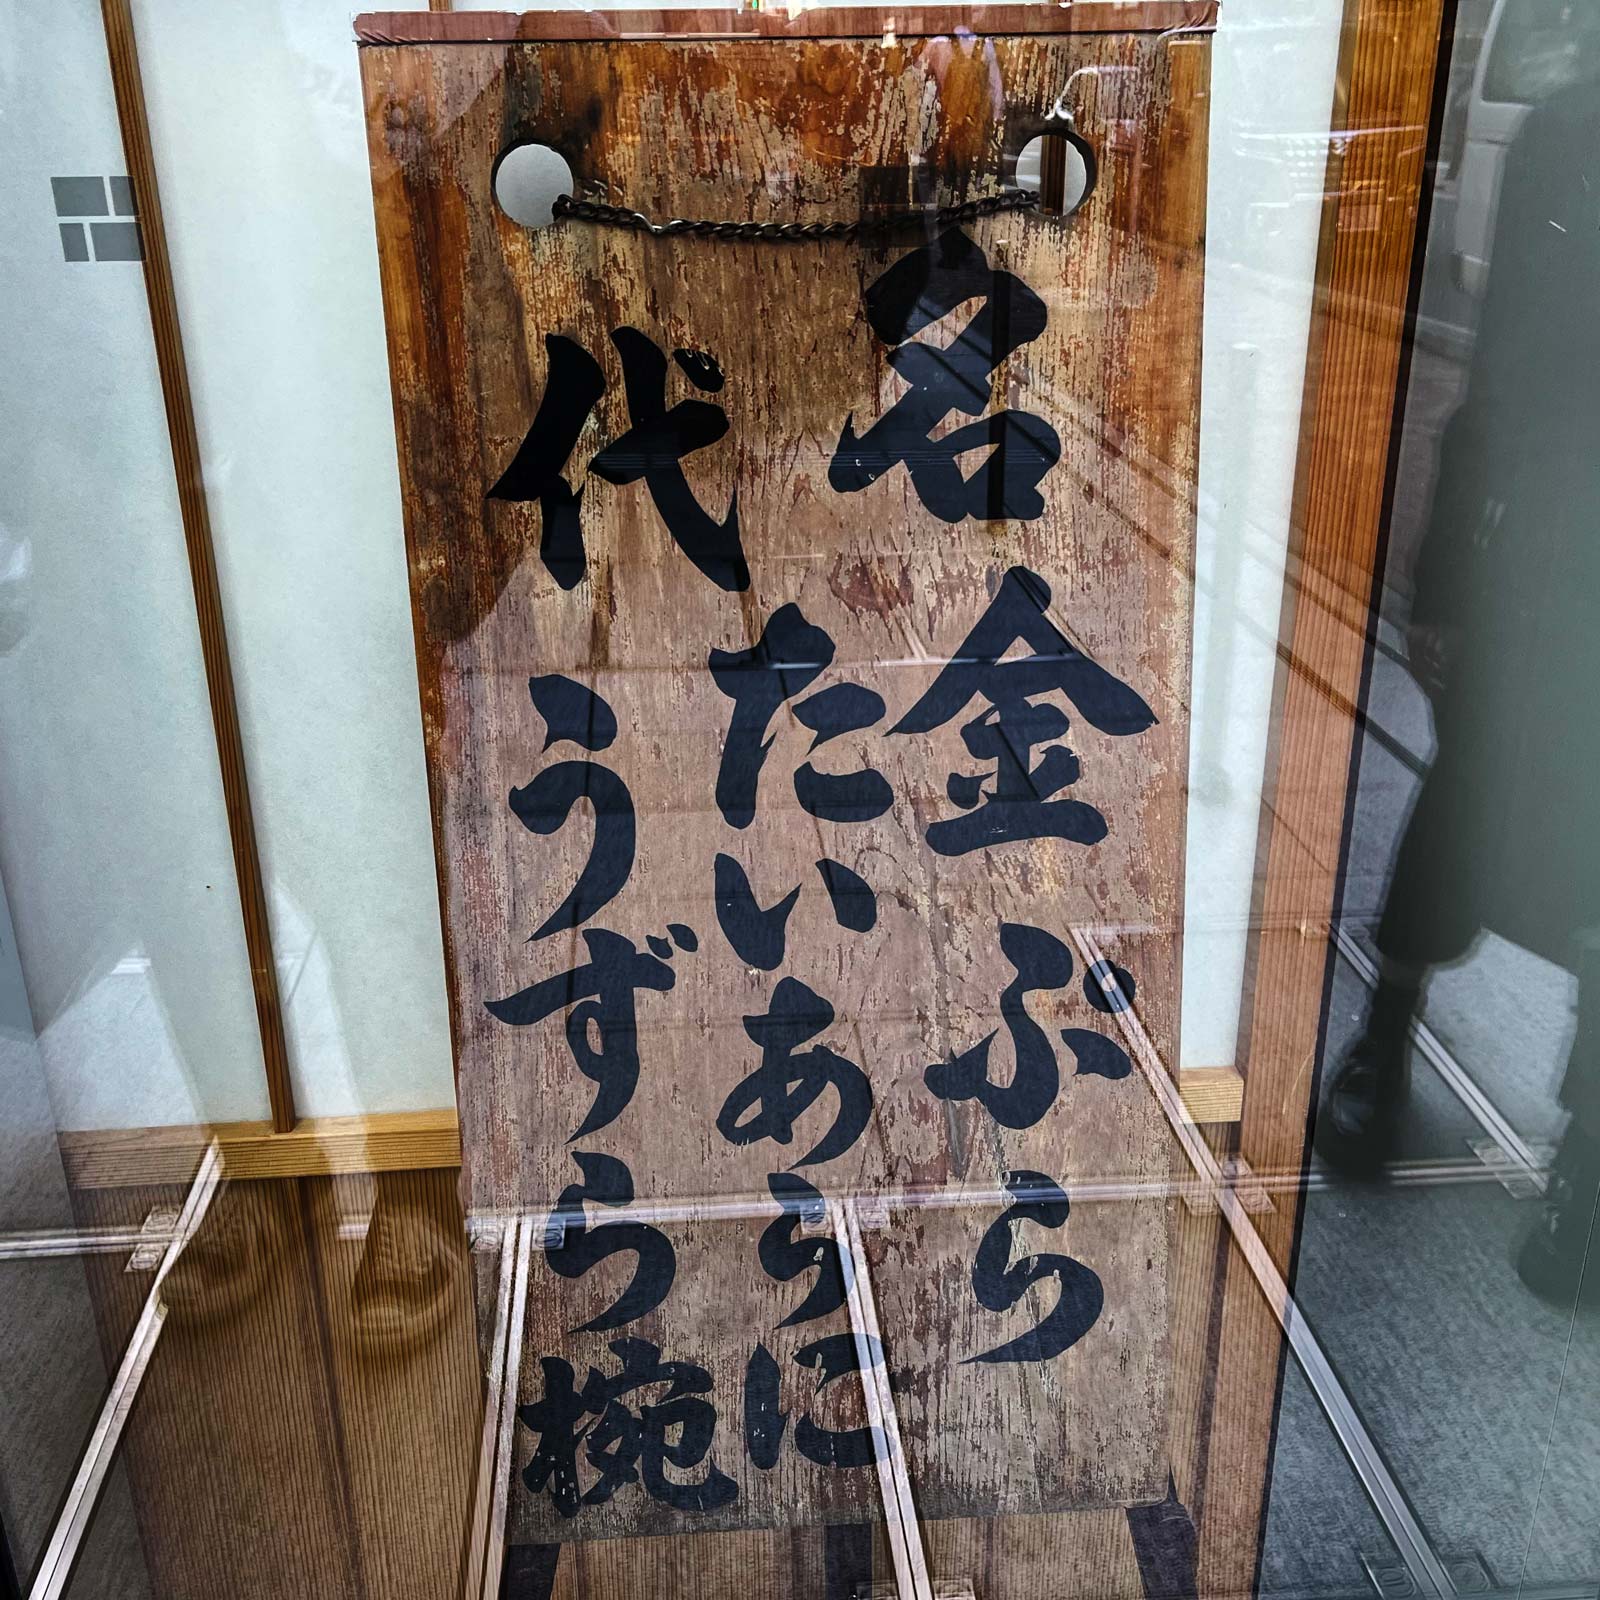 名代
金ぷら
たいあらに
うずら椀